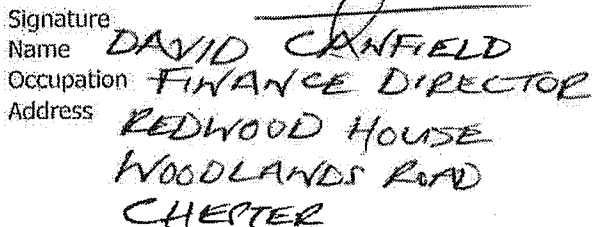 Signature
Name DAVID CANFIELD
Occupation FINANCE DIRECTOR
Address REDWOOD HOUSE
WOODLANDS ROAD
CHESTER